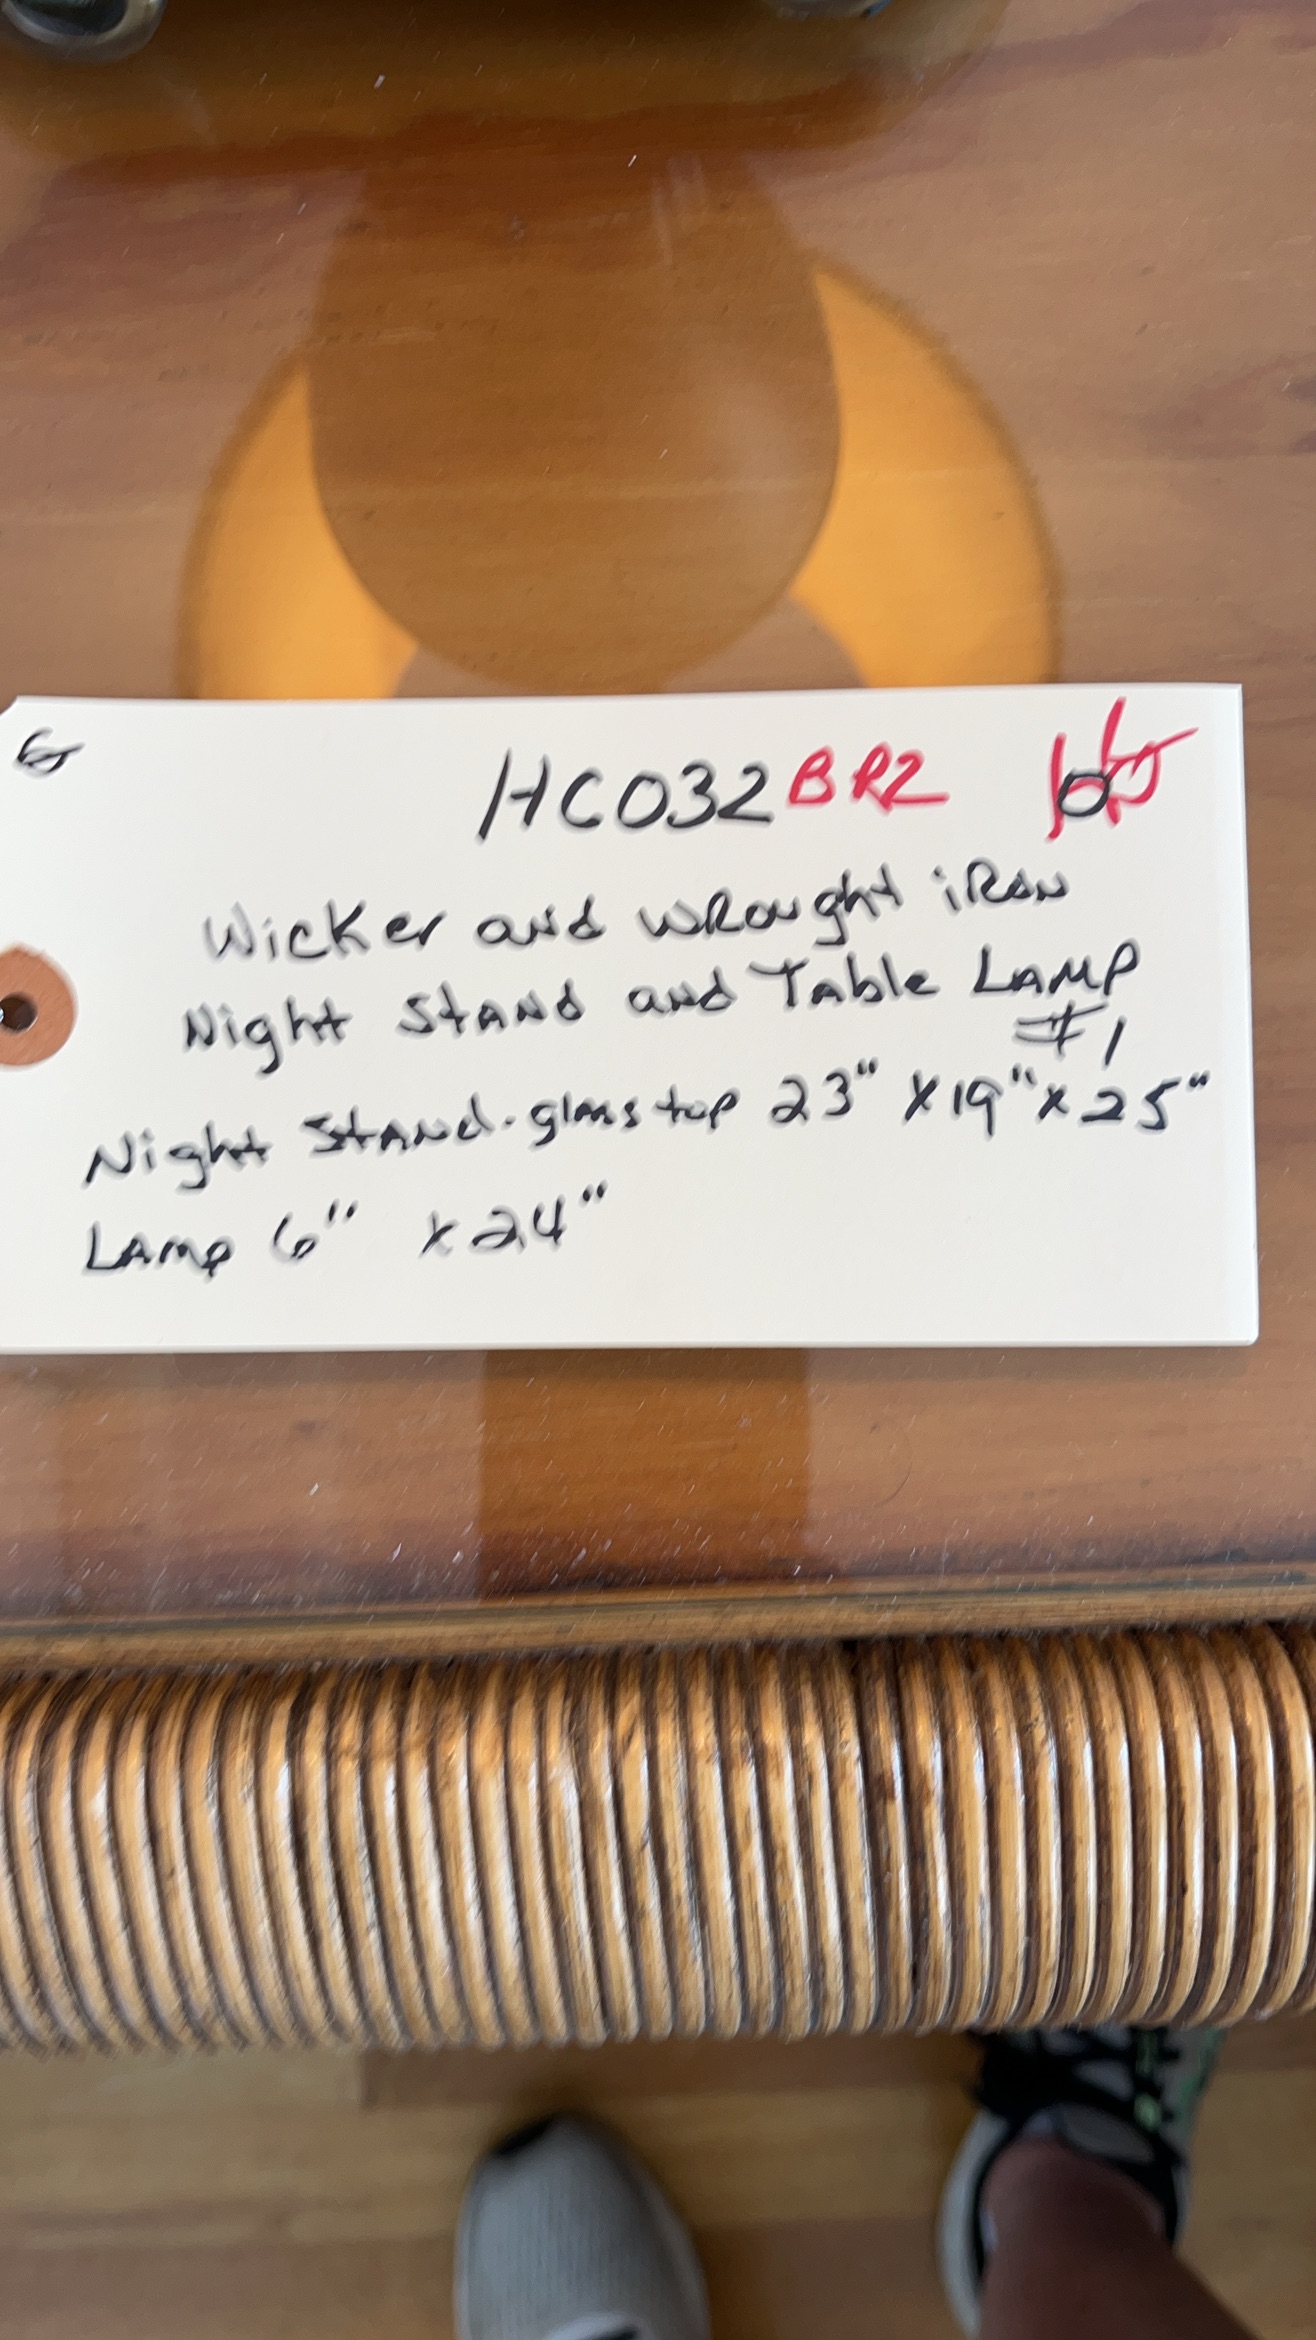 HC032 BR2
Wicker and wrought iron
Night Stand and Table Lamp
#1
Night Stand. glass top 23" x 19" x 25"
Lamp 6" x 24"